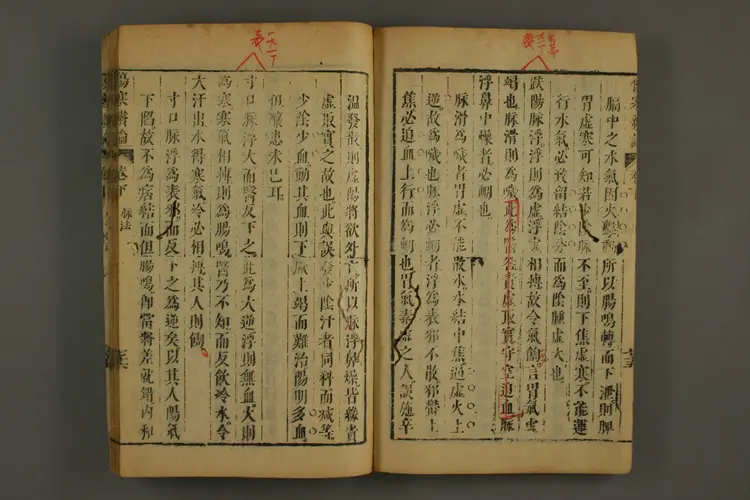 膈中之水氣因火擊所以腸鳴轉而下泄則脾
胃虛寒可知若脉不至則下焦虛寒不能運
行水氣必致留結陰分而為陰腫虛大也
趺陽脉浮浮則為虛浮虛相搏故令氣䭇言胃氣虛
竭也脉滑則為噦此為醫咎責虛取實守空迫血脉
浮鼻中燥者必衂也
脉滑為噦者胃虛不能散水水結中焦逼虛火上
逆故為噦也脉浮必衂者浮為表邪不散邪鬱上
焦必迫血上行而為衂也胃氣素虛之人誤施辛
傷寒纘論
卷下
脉法
溫發散則虛陽將欲外亡所以脉浮鼻燥皆緣責
虛取實之故也此與誤發少陰汗者同科而減等
少陰少血動其血則下厥上竭而難治陽明多血
但釀患未已耳
寸口脉浮大而醫反下之此為大逆浮則無血大則
為寒寒氣相搏則為腸鳴醫乃不知而反飲冷水令
大汗出水得寒氣冷必相搏其人則䭇
寸口脉浮為表邪而反下之為逆矣以其人陽氣
下陷故不為痞結而但腸鳴卽當將差就錯內和